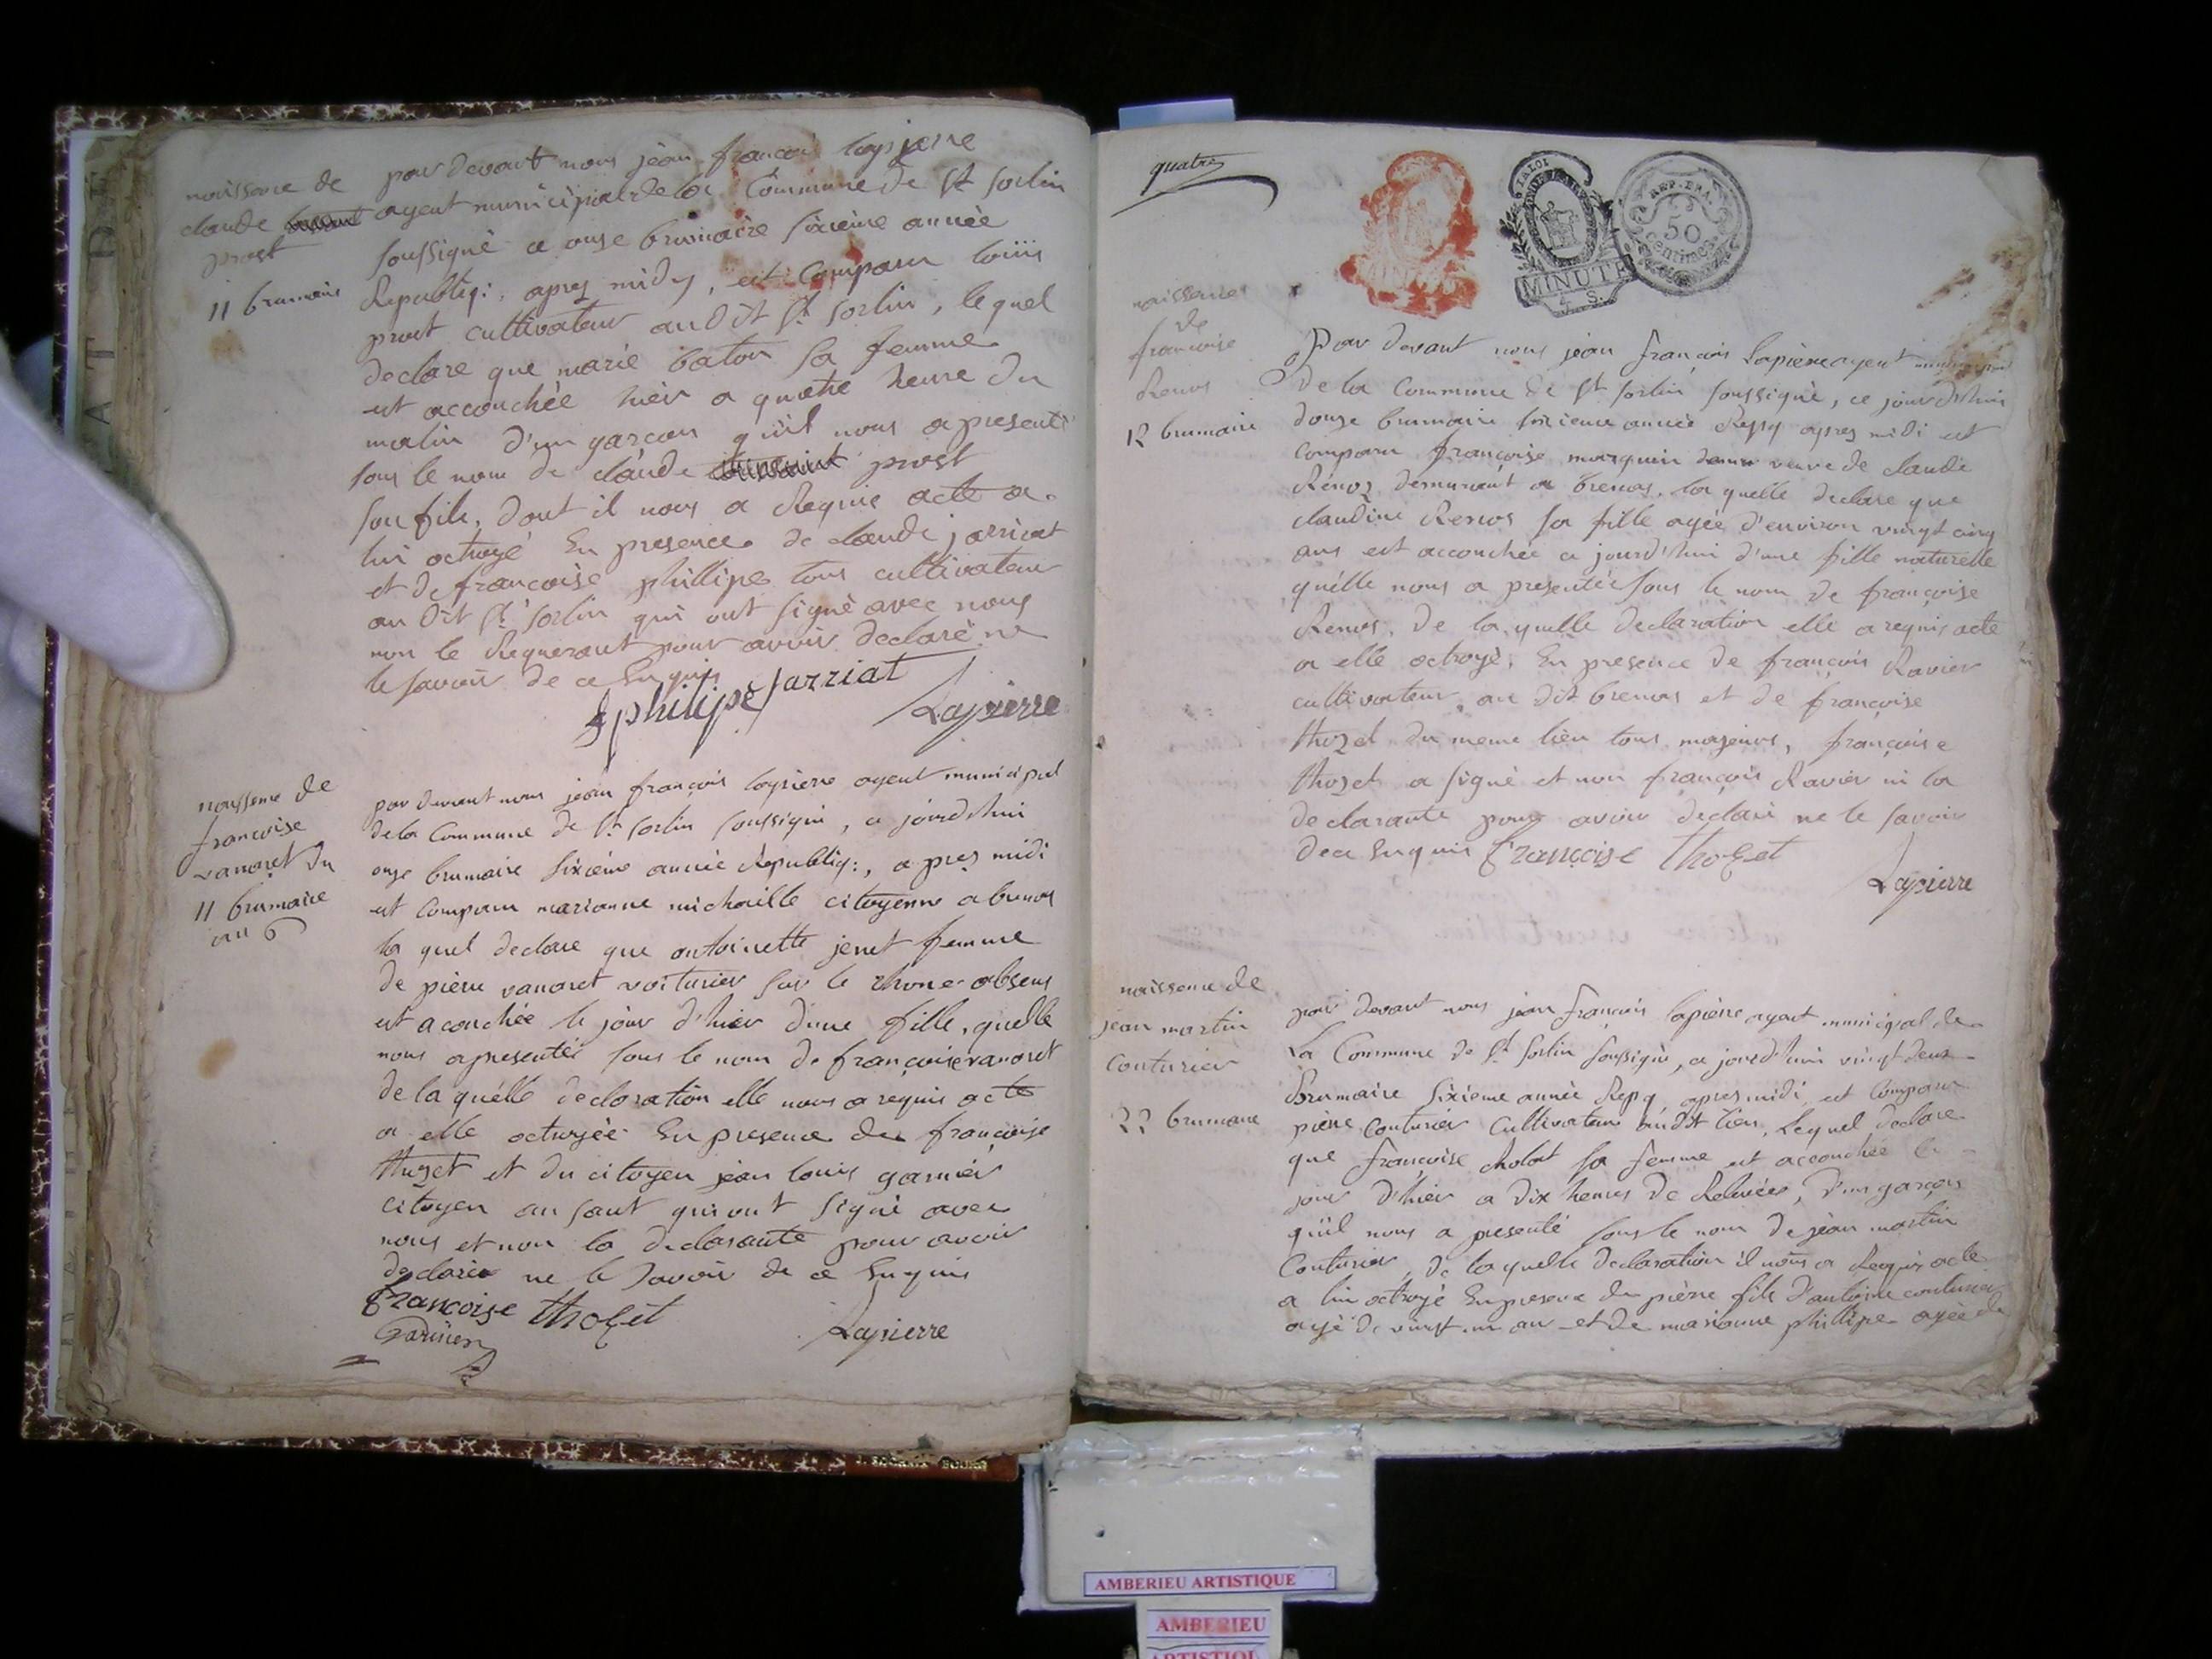 naissence de
claude
prost
11 brumaire
par devant nous jean françois lapierre
agent municipal de la Commune de St Sorlin
soussigné ce onze brumaire sixieme année
Republiq: apres midy, est comparu louis
prost cultivateur au dit St Sorlin, lequel
declare que marie baton sa femme
est accouchée hier a quatre heure du
matin d'un garçon qu'il nous a presenté
sous le nom de claude prost
son fils, dont il nous a Requis acte a
lui octroyé En presence de claude jarriat
et de françoise phillipe tous cultivateur
au dit St Sorlin qui ont signé avec nous
non le Requerant pour avoir declaré ne
le savoir de ce Enquis
f philipe Jarriat
Lapierre
naissence de
francoise
vanoret du
11 brumaire
an 6
par devant nous jean françois lapierre agent municipal
de la Commune de St Sorlin soussigné, ce jourd'hui
onze brumaire sixieme année Republiq:, apres midi
est comparu marianne michaille citoyenne a brenos
la quel declare que antoinette jenet femme
de pierre vanoret voiturier sur le rhone absens
est acouchée le jour d'hier d'une fille, quelle
nous a presentée sous le nom de françoise vanoret
de la quelle declaration elle nous a requis acte
a elle octroyée En presence de francoise
thozet et du citoyen jean louis garnier
citoyen au saut qui ont signé avec
nous et non la declarante pour avoir
declaré ne le savoir de ce Enquis
francoise thozet
Garnier
Lapierre
quatre
LA LOI
MINUTE
REP. FRA.
50
centimes
MINUTE
naissence
de
francoise
Renos
12 brumaire
Par devant nous jean françois Lapierre agent municipal
De la Commune de St Sorlin soussigné, ce jourd'hui
douze brumaire sixieme année Repq apres midi est
comparu françoise veuve de claude
Renos demurant a brenos, la quelle declare que
claudine Renos sa fille agée d'environ vingt cinq
ans est accouchée ce jourd'hui d'une fille naturelle
qu'elle nous a presentée sous le nom de françoise
Renos, De la quelle declaration elle a requis acte
a elle octroyé, En presence de françois Ravier
cultivateur au dit brenos et de françoise
thozet du meme lieu tous majeurs, françoise
thozet a signé et non françois Ravier ni la
declarante pour avoir declaré ne le savoir
de ce Enquis françoise thozet
Lapierre
naissence de
jean martin
Couturier
22 brumaire
par devant nous jean françois lapierre agent municipal de
La Commune de St Sorlin soussigné, ce jourd'hui vingt deux
Brumaire sixieme année Repq apres midi, est comparu
pierre Couturier Cultivateur audit lieu, Lequel declare
que françoise cholat sa femme est accouchée le
jour d'hier a dix heures de Relevée, d'un garçon
qu'il nous a presenté sous le nom de jean martin
Couturier, De laquelle declaration il nous a Requis acte
a lui octroyé En presence de pierre fils d'antoine couturier
agé de vingt un an et de marianne phillipe agée de
J. BOURG
AMBERIEU ARTISTIQUE
AMBERIEU
ARTISTIQUE